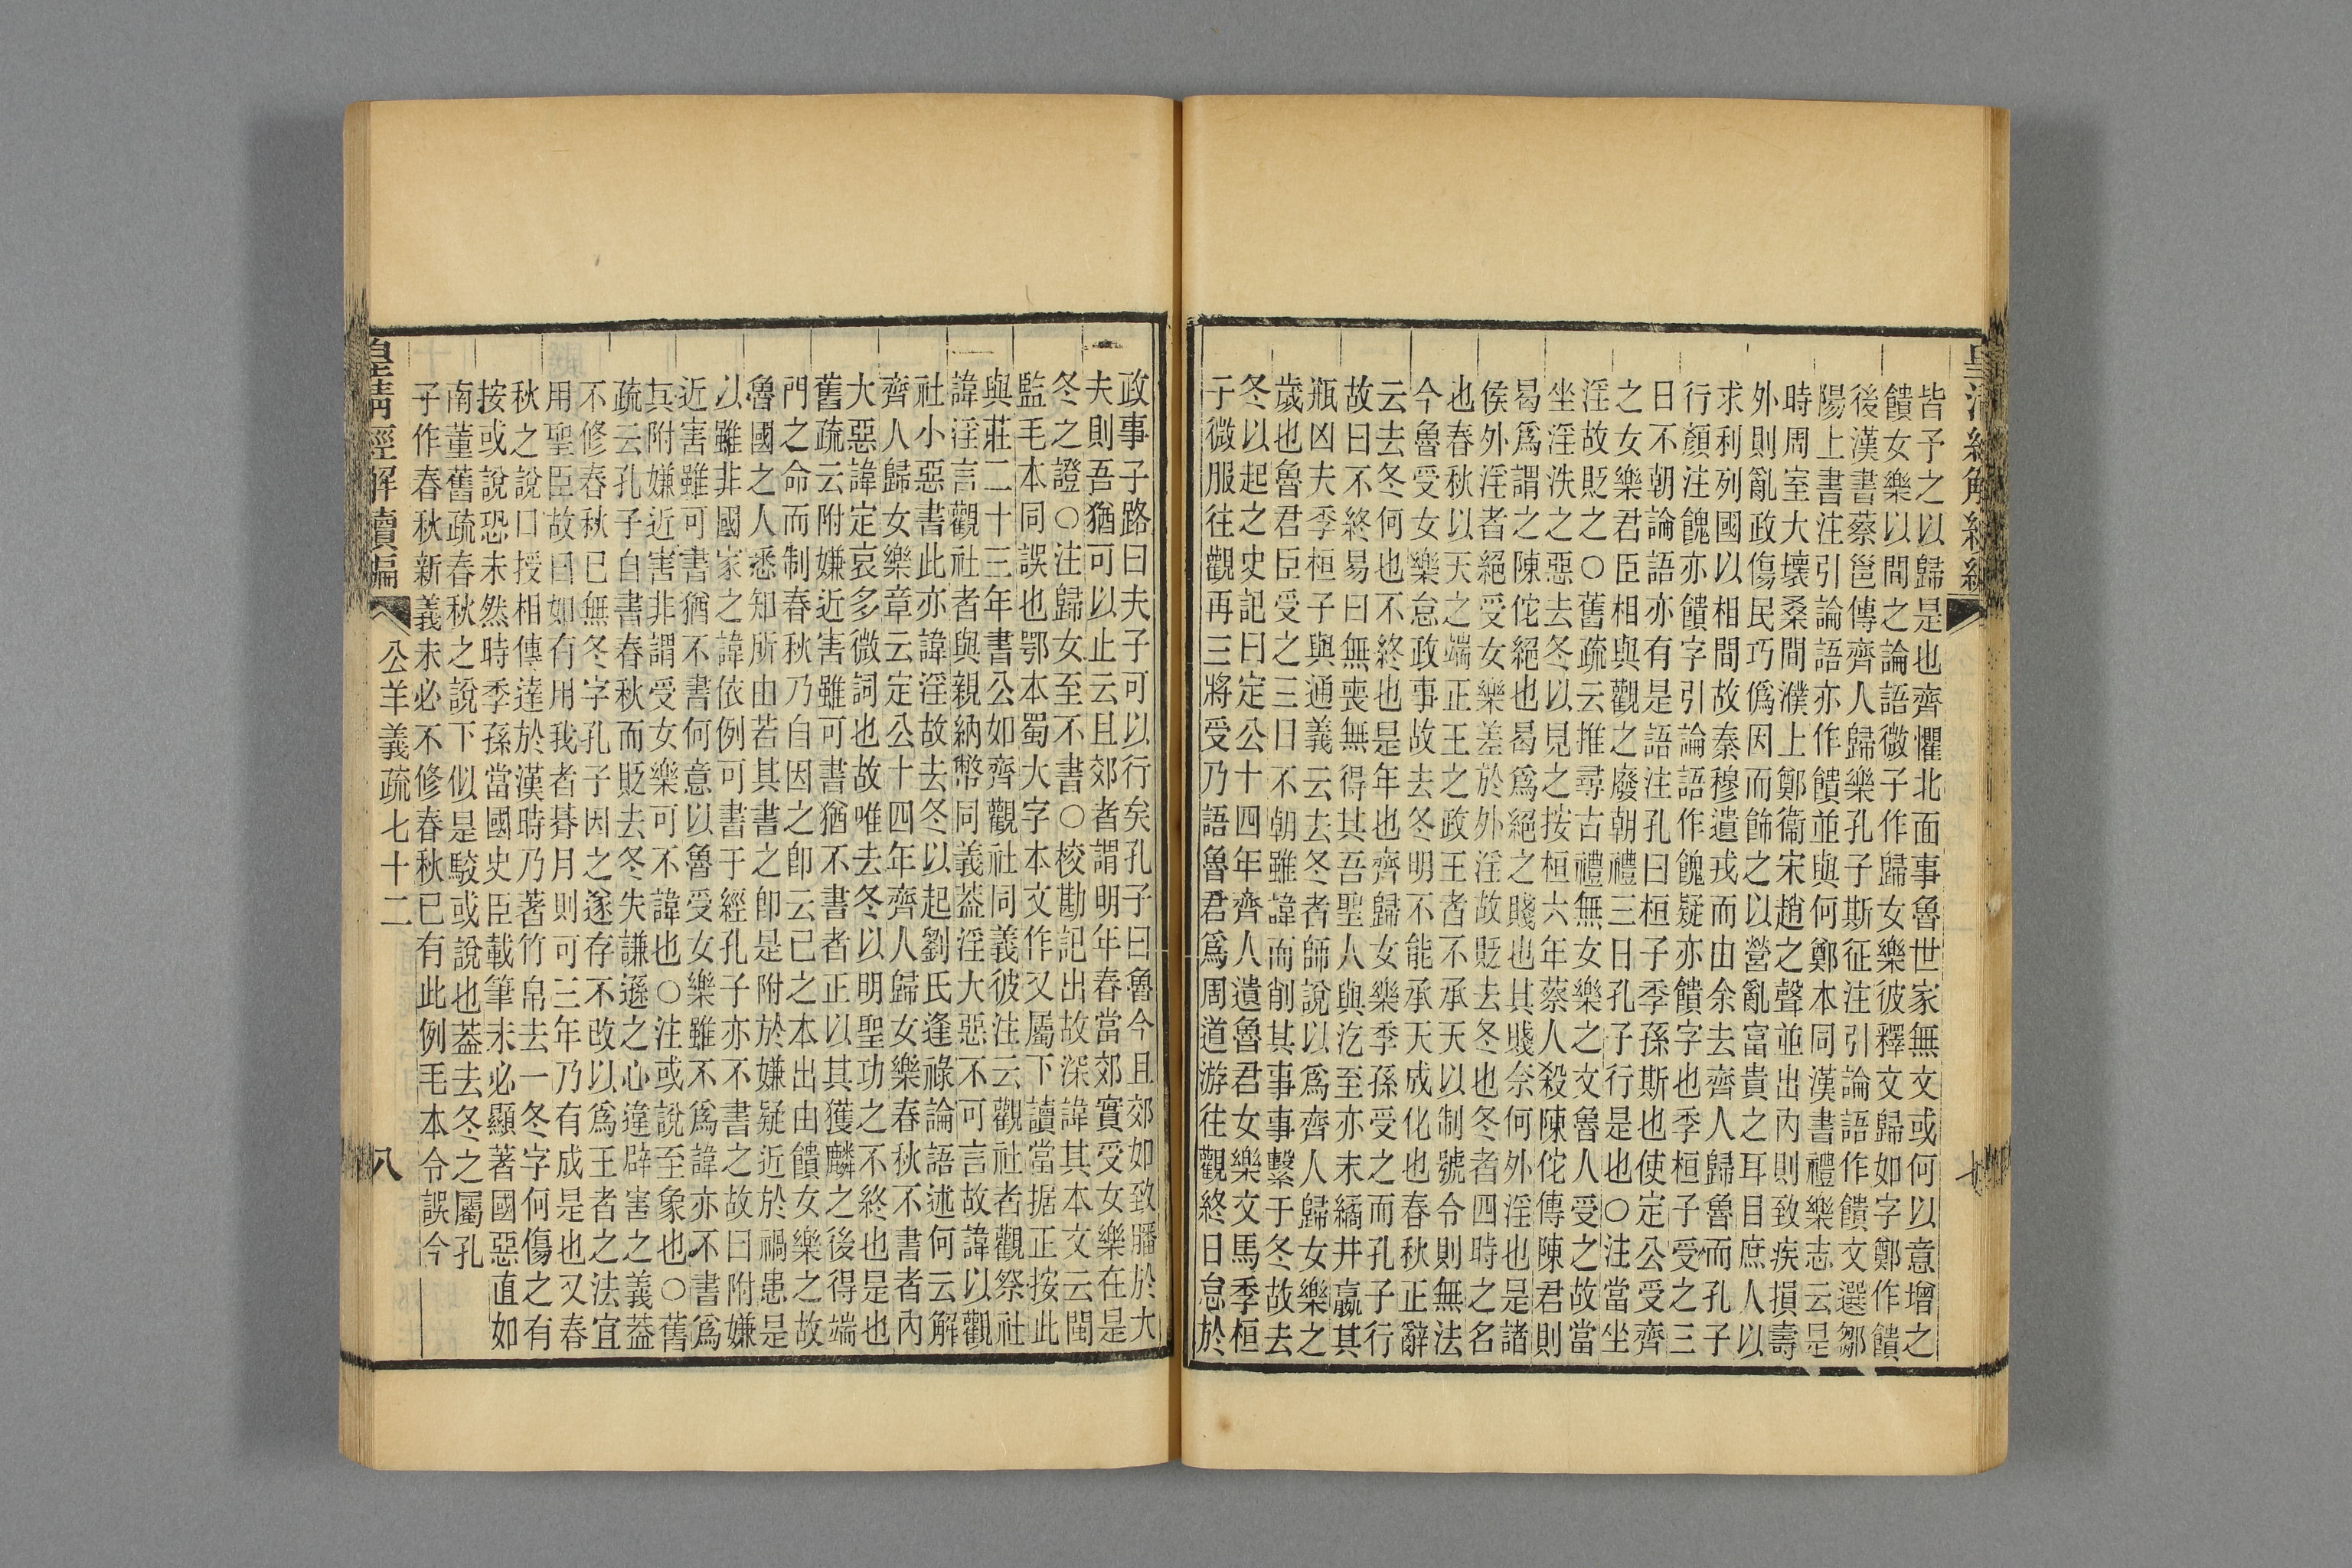 皆予之以歸是也齊懼北面事魯世家無文或何以意增之
饋女樂以間之論語微子作歸女樂彼釋文歸如字鄭作饋
後漢書蔡邕傳齊人歸樂孔子斯征注引論語作饋文選鄒
陽上書注引論語亦作饋並與何鄭本同漢書禮樂志云是
時周室大壞桑間濮上鄭衞宋趙之聲並出內則致疾損壽
外則亂政傷民巧僞因而飾之以營亂富貴之耳目庶人以
求利列國以相間故秦穆遺戎而由余去齊人歸魯而孔子
行顏注餽亦饋字引論語作餽疑亦饋字也季桓子受之三
日不朝論語亦有是語注孔曰桓子季孫斯也使定公受齊
之女樂君臣相與觀之廢朝禮三日孔子行是也○注當坐
淫故貶之○舊疏云推尋古禮無女樂之文魯人受之故當
坐淫泆之惡去冬以見之按桓六年蔡人殺陳佗傳陳君則
曷爲謂之陳佗絕也曷爲絕之賤也其賤奈何外淫也是諸
侯外淫者絕受女樂差於外淫故貶去冬也冬者四時之名
也春秋以天之端正王之政王者不承天以制號令則無法
今魯受女樂怠政事故去冬明不能承天成化也春秋正辭
云去冬何也不終也是年也齊歸女樂季孫受之而孔子行
故曰不終易曰無喪無得其吾聖人與汔至亦未繘井羸其
瓶凶夫季桓子與通義云去冬者師說以爲齊人歸女樂之
歲也魯君臣受之三日不朝雖諱而削其事事繫于冬故去
冬以起之史記曰定公十四年齊人遺魯君女樂文馬季桓
子微服往觀再三將受乃語魯君爲周道游往觀終日怠於
政事子路曰夫子可以行矣孔子曰魯今且郊如致膰於大
夫則吾猶可以止云且郊者謂明年春當郊實受女樂在是
冬之證○注歸女至不書○校勘記出故深諱其本文云閩
監毛本同誤也鄂本蜀大字本文作又屬下讀當据正按此
與莊二十三年書公如齊觀社同義彼注云觀社者觀祭社
諱淫言觀社者與親納幣同義葢淫大惡不可言故諱以觀
社小惡書此亦諱淫故去冬以起劉氏逢祿論語述何云解
齊人歸女樂章云定公十四年齊人歸女樂春秋不書者內
大惡諱定哀多微詞也故唯去冬以明聖功之不終也是也
舊疏云附嫌近害雖可書猶不書者正以其獲麟之後得端
門之命而制春秋乃自因之卽云己之本出由饋女樂之故
魯國之人悉知所由若其書之卽是附於嫌疑近於禍患是
以雖非國家之諱依例可書于經孔子亦不書之故曰附嫌
近害雖可書猶不書何意以魯受女樂雖不爲諱亦不書爲
其附嫌近害非謂受女樂可不諱也○注或說至象也○舊
疏云孔子自書春秋而貶去冬失謙遜之心違辟害之義葢
不修春秋已無冬字孔子因之遂存不改以爲王者之法宜
用聖臣故曰如有用我者朞月則可三年乃有成是也又春
秋之說口授相傳達於漢時乃著竹帛去一冬字何傷之有
按或說恐未然時季孫當國史臣載筆未必顯著國惡直如
南董舊疏春秋之說下似是駮或說也葢去冬之屬孔
子作春秋新義未必不修春秋已有此例毛本令誤今
皇清經解續編
公羊義疏七十二
八